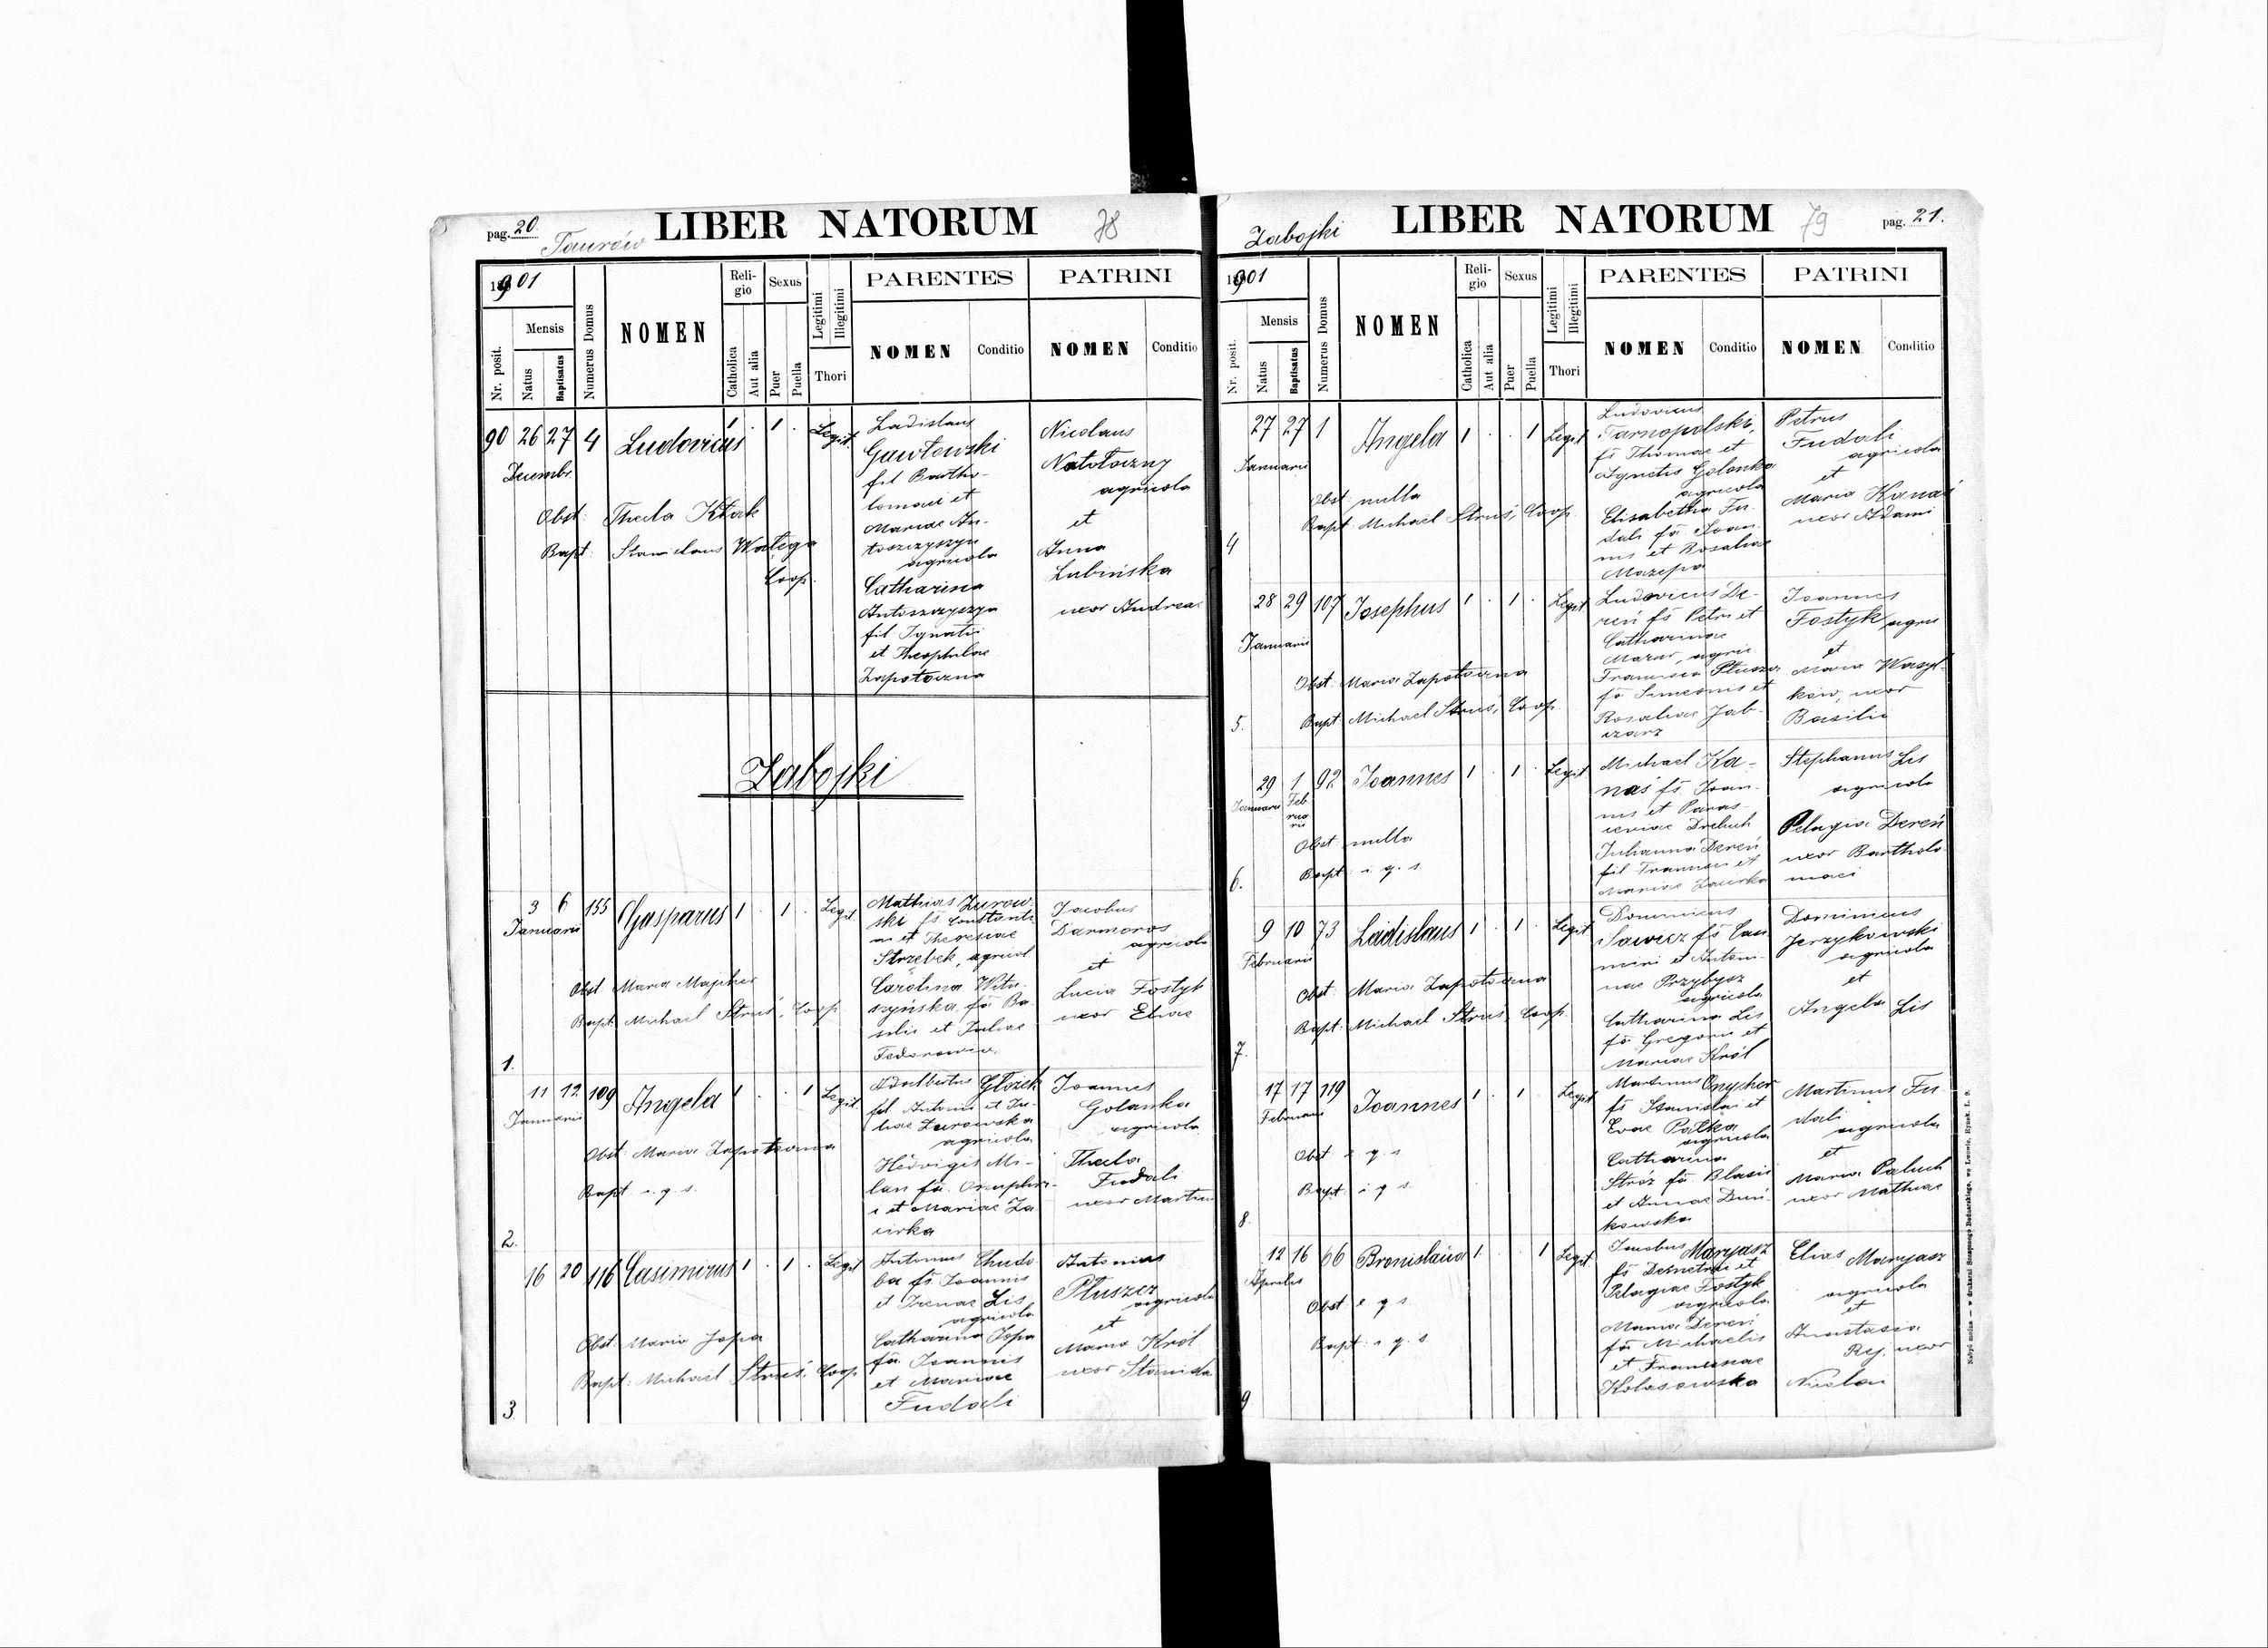 pag. 20.
Taurów
LIBER NATORUM
78
1901
Nr. posit.
Mensis
Natus
Baptisatus
Numerus Domus
NOMEN
Reli-
gio
Catholica
Aut alia
Sexus
Puer
Puella
Legitimi
Illegitimi
Thori
PARENTES
NOMEN
Conditio
PATRINI
NOMEN
Conditio
90 26 27 4 Ludovicus 1 . 1 . Legit.
Decembr.
Obst: Thecla Kłak
Bapt: Stanislaus Wałęga
Coop.
Ladislaus
Gawłowski
fil Bartho-
lomaei et
Mariae An-
toszczyszyn
agricola
Catharina
Antoszczyszyn
fil Ignatii
et Theophilae
Zapotoczna
Nicolaus
Natołoczny
agricola
et
Anna
Lubińska
uxor Andreae
Zabojki
3 6 155 Gasparus 1 . 1 . Legit.
Januarii
Obst Maria Majcher
Bapt: Michael Struś, Coop.
1.
Mathias Zurow-
ski fs Constanti-
ni et Theresiae
Strzebek, agricol
Carolina Witu-
szyńska fa Ba-
silii et Juliae
Fedorowicz
Jacobus
Darmoros
agricola
et
Lucia Fostyk
uxor Eliae
11 12 109 Angela 1 . . 1 Legit.
Januarii
Obst: Maria Zapotoczna
Bapt: i. q. s.
2.
Adalbertus Głozek
fil. Antonii et Ju-
liae Zurowska
agricola
Hedvigis Mi-
lan fa. Onuphri-
i et Mariae Za-
cirka
Joannes
Golanka
agricola
Thecla
Fudali
uxor Martini
16 20 116 Casimirus 1 . 1 . Legit
Obst: Maria Jopa
Bapt: Michael Struś, Coop
3.
Antonius Chudo-
ba fs. Joannis
et Irenae Lis
agricola
Catharina Jopa
fa. Joannis
et Mariae
Fudali
Antonius
Płuszcz
agricola
et
Maria Król
uxor Stanisla
Zabojki
LIBER NATORUM
79
pag. 21.
1901
Nr. posit.
Mensis
Natus
Baptisatus
Numerus Domus
NOMEN
Reli-
gio
Catholica
Aut alia
Sexus
Puer
Puella
Legitimi
Illegitimi
Thori
PARENTES
NOMEN
Conditio
PATRINI
NOMEN
Conditio
27 27 1 Angela 1 . . 1 Legit
Januarii
Obst: nulla
Bapt Michael Struś, Coop
4
Ludovicus
Tarnopolski,
fs Thomae et
Agnetis Golanka
agricola
Elisabetha Fu-
dali fa Joan-
nis et Rosaliae
Mazepa
Petrus
Fudali
agricola
et
Maria Kanaś
uxor Adami
28 29 107 Josephus 1 . 1 . Legit
Januarii
Obst. Maria Zapotoczna
Bapt Michael Struś, Coop.
5.
Ludovicus De-
reń fs Petri et
Catharinae
Mazur, agric.
Francisca Płuszcz
fa Simeonis et
Rosaliae Jab-
czarz
Joannes
Fostyk agri
et
Maria Wasyl-
ków, uxor
Basilii
29 1 92 Joannes 1 . 1 . Legit
Januarii Feb
rua
rii
Obst: nulla
Bapt: i. q. s
6.
Michael Ka-
naś fs Joan-
nis et Paras-
ceviae Drebuch
Julianna Dereń
fil Francisci et
Mariae Zacirka
Stephanus Lis
agricola
Pelagia Dereń
uxor Bartholo-
maei
9 10 73 Ladislaus 1 . 1 . Legit
Februarii
Obst: Maria Zapotoczna
Bapt: Michael Struś, Coop.
7.
Dominicus
Sawicz fs Casi
miri et Anton-
nae Przybysz
agricola
Catharina Lis
fa Gregorii et
Mariae Król
Dominicus
Jerzykowski
agricola
et
Angela Lis
17 17 119 Joannes 1 . 1 . Legit
Februarii
Obst: e. q. s
Bapt: i. q. s.
8.
Martinus Onyszker
fs Stanislai et
Evae Pałka
agricola
Catharina
Stróż fa Blasii
et Annae Duni-
kowska
Martinus Fu-
dali
agricola
et
Maria Paluch
uxor Mathiae
12 16 66 Bronislava 1 . . 1 Legit
Aprilis
Obst: e q s.
Bapt: i. q. s
9
Jacobus Maryasz
fs Demetrii et
Pelagiae Fostyk
agricola
Maria Dereń
fa Michaelis
et Franciscae
Kolasowska
Elias Maryasz
agricola
et
Anastasia
Rej. uxor
Nicolai